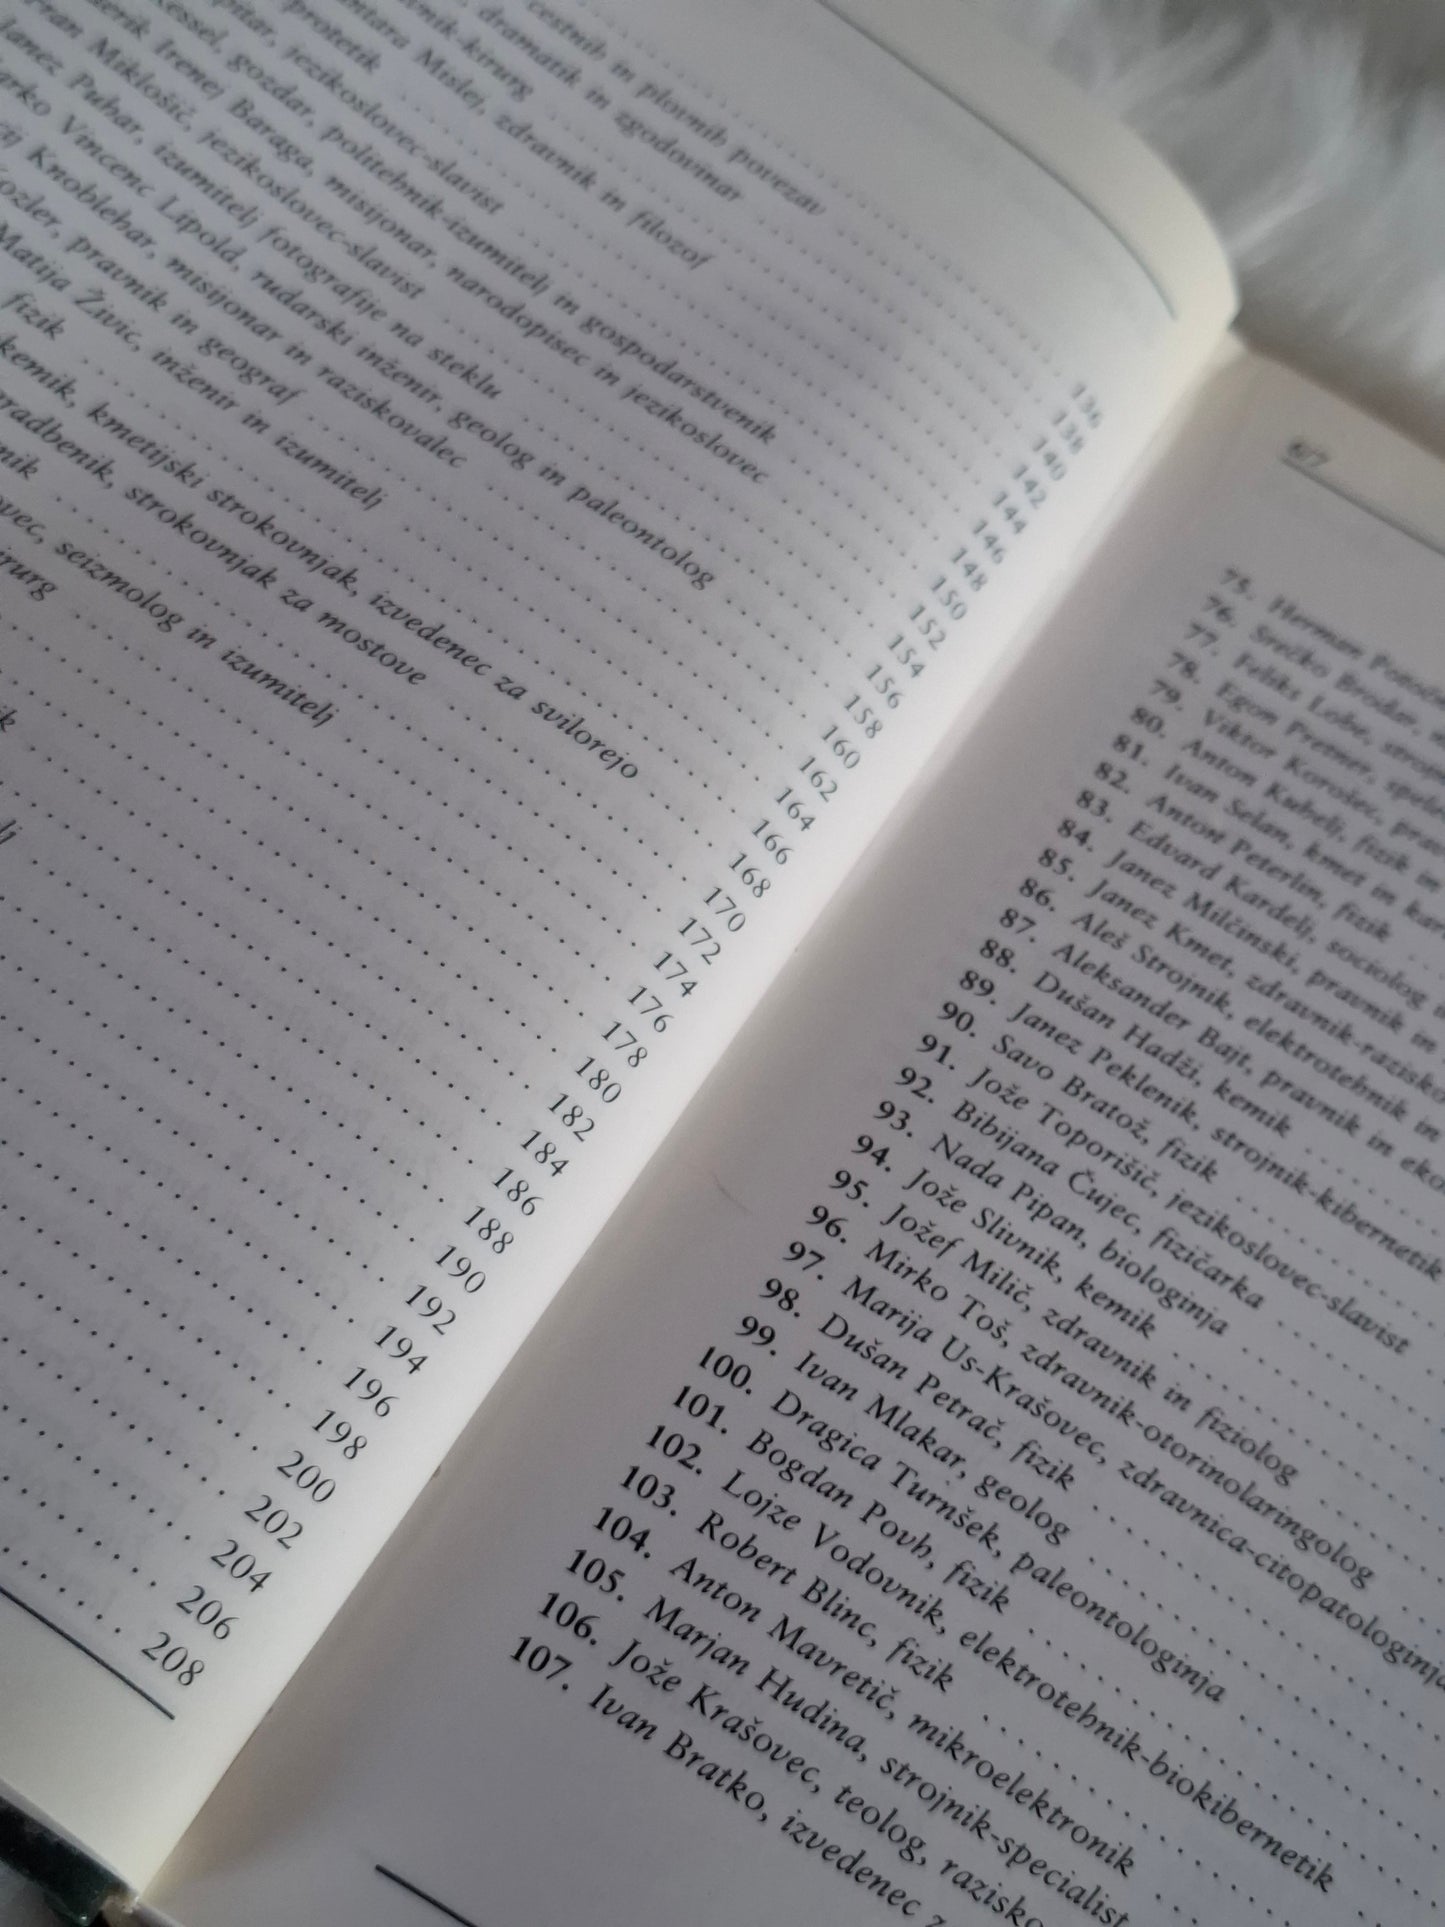 cestnih in plovnih povezav
dramatik in zgodovinar
-kirurg
Mislej, zdravnik in filozof
Protetik
jezikoslovec-slavist
gozdar, politehnik-izumitelj in gospodarstvenik
Irenej Baraga, misijonar, narodopisec in jezikoslovec
Miklošič, jezikoslovec-slavist
Janez Puhar, izumitelj fotografije na steklu
Vincenc Lipold, rudarski inženir, geolog in paleontolog
Knoblehar, misijonar in raziskovalec
pravnik in geograf
Matija Živic, inženir in izumitelj
fizik
kemik, kmetijski strokovnjak, izvedenec za svilorejo
strokovnjak za mostove
seizmolog in izumitelj
136
138
140
142
144
146
148
150
152
154
156
158
160
162
164
166
168
170
172
174
176
178
180
182
184
186
188
190
192
194
196
198
200
202
204
206
208
6/7
75. Herman
76. Srečko Brodar,
77. Feliks Lobe,
78. Egon Pretner,
79. Viktor Korošec,
80. Anton Kuhelj, fizik in
81. Ivan Selan, kmet in
82. Anton Peterlin, fizik
83. Edvard Kardelj, sociolog
84. Janez Milčinski, pravnik in
85. Janez Kmet, zdravnik-
86. Aleš Strojnik, elektrotehnik in
87. Aleksander Bajt, pravnik in
88. Dušan Hadži, kemik
89. Janez Peklenik, strojnik-kibernetik
90. Savo Bratož, fizik
91. Jože Toporišič, jezikoslovec-slavist
92. Bibijana Čujec, fizičarka
93. Nada Pipan, biologinja
94. Jože Slivnik, kemik
95. Jožef Milič, zdravnik in fiziolog
96. Mirko Toš, zdravnik-otorinolaringolog
97. Marija Us-Krašovec, zdravnica-citopatologinja
98. Dušan Petrač, fizik
99. Ivan Mlakar, geolog
100. Dragica Turnšek, paleontologinja
101. Bogdan Povh, fizik
102. Lojze Vodovnik, elektrotehnik-biokibernetik
103. Robert Blinc, fizik
104. Anton Mavretič, mikroelektronik
105. Marjan Hudina, strojnik-specialist
106. Jože Krašovec, teolog,
107. Ivan Bratko, izvedenec